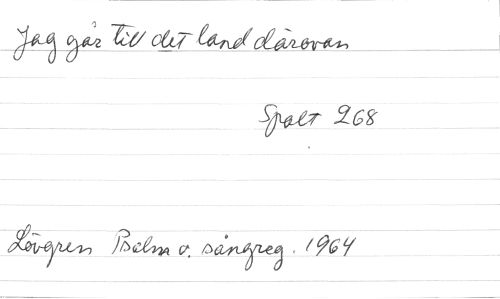 Jag går till det land därovan
Spalt 268
Lövgren Psalm o. sångreg. 1964